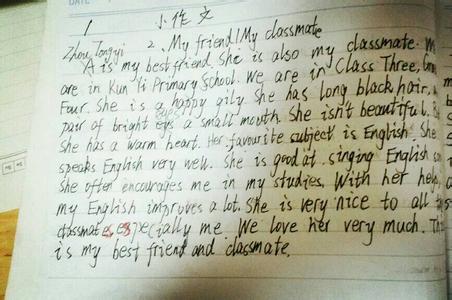 DATE
1 小作文
2. My friend/My classmate
Zhou Tongyi is my best friend. She is also my classmate. We
are in Kun Yi Primary School. We are in Class Three,
Four. She is a happy gily. She has long black hair, a
pair of bright eyes a small mouth. She isn't beautiful.
She has a warm heart. Her favourite subject is English. She
speaks English very well. She is good at singing English
She often encourages me in my studies. With her help,
my English improves a lot. She is very nice to all
classmates, especially me. We love her very much.
is my best friend and classmate.